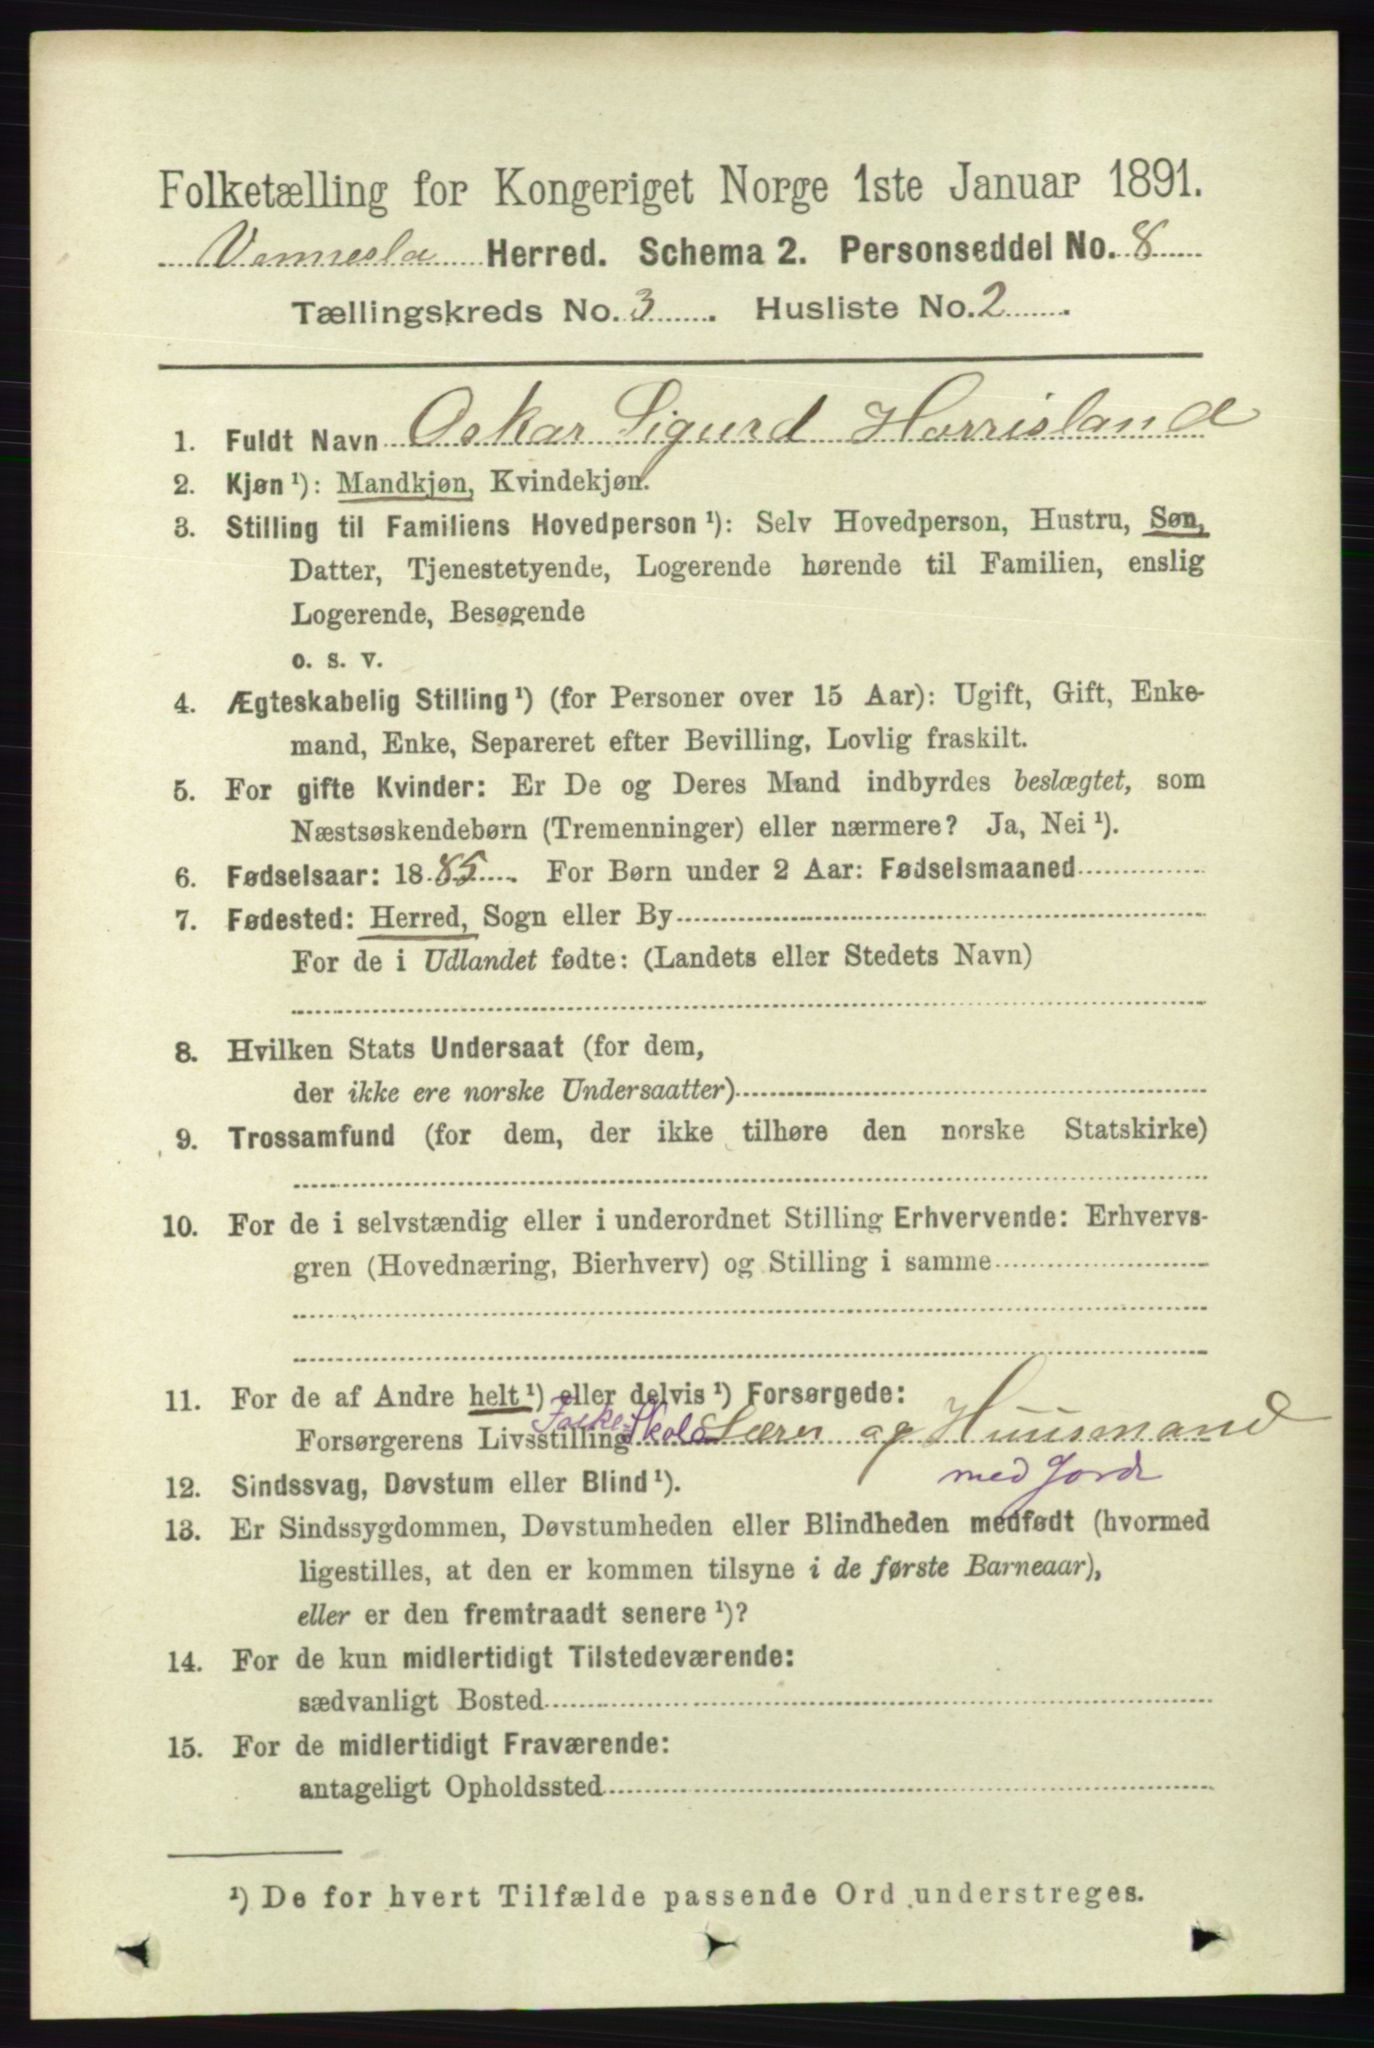 Folketælling for Kongeriget Norge 1ste Januar 1891.
Vennesla Herred. Schema 2. Personseddel No. 8
Tællingskreds No. 3. Husliste No. 2.
1. Fuldt Navn Oskar Sigurd Horrisland
2. Kjøn ¹): Mandkjøn, Kvindekjøn.
3. Stilling til Familiens Hovedperson ¹): Selv Hovedperson, Hustru, Søn,
Datter, Tjenestetyende, Logerende hørende til Familien, enslig
Logerende, Besøgende
o. s. v.
4. Ægteskabelig Stilling ¹) (for Personer over 15 Aar): Ugift, Gift, Enke-
mand, Enke, Separeret efter Bevilling, Lovlig fraskilt.
5. For gifte Kvinder: Er De og Deres Mand indbyrdes beslægtet, som
Næstsøskendebørn (Tremenninger) eller nærmere? Ja, Nei ¹).
6. Fødselsaar: 1885. For Børn under 2 Aar: Fødselsmaaned
7. Fødested: Herred, Sogn eller By
For de i Udlandet fødte: (Landets eller Stedets Navn)
8. Hvilken Stats Undersaat (for dem,
der ikke ere norske Undersaatter)
9. Trossamfund (for dem, der ikke tilhøre den norske Statskirke)
10. For de i selvstændig eller i underordnet Stilling Erhvervende: Erhvervs-
gren (Hovednæring, Bierhverv) og Stilling i samme
11. For de af Andre helt ¹) eller delvis ¹) Forsørgede:
Forsørgerens Livsstilling Folke-Skole Lærer og Huusmand
med Jord
12. Sindssvag, Døvstum eller Blind ¹).
13. Er Sindssygdommen, Døvstumheden eller Blindheden medfødt (hvormed
ligestilles, at den er kommen tilsyne i de første Barneaar),
eller er den fremtraadt senere ¹)?
14. For de kun midlertidigt Tilstedeværende:
sædvanligt Bosted
15. For de midlertidigt Fraværende:
antageligt Opholdssted
¹) De for hvert Tilfælde passende Ord understreges.